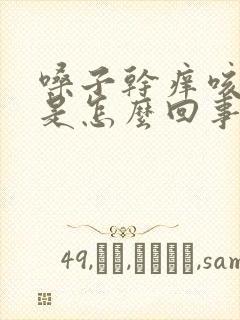 嗓子幹痒咳
是怎麼回事
49,
,sam